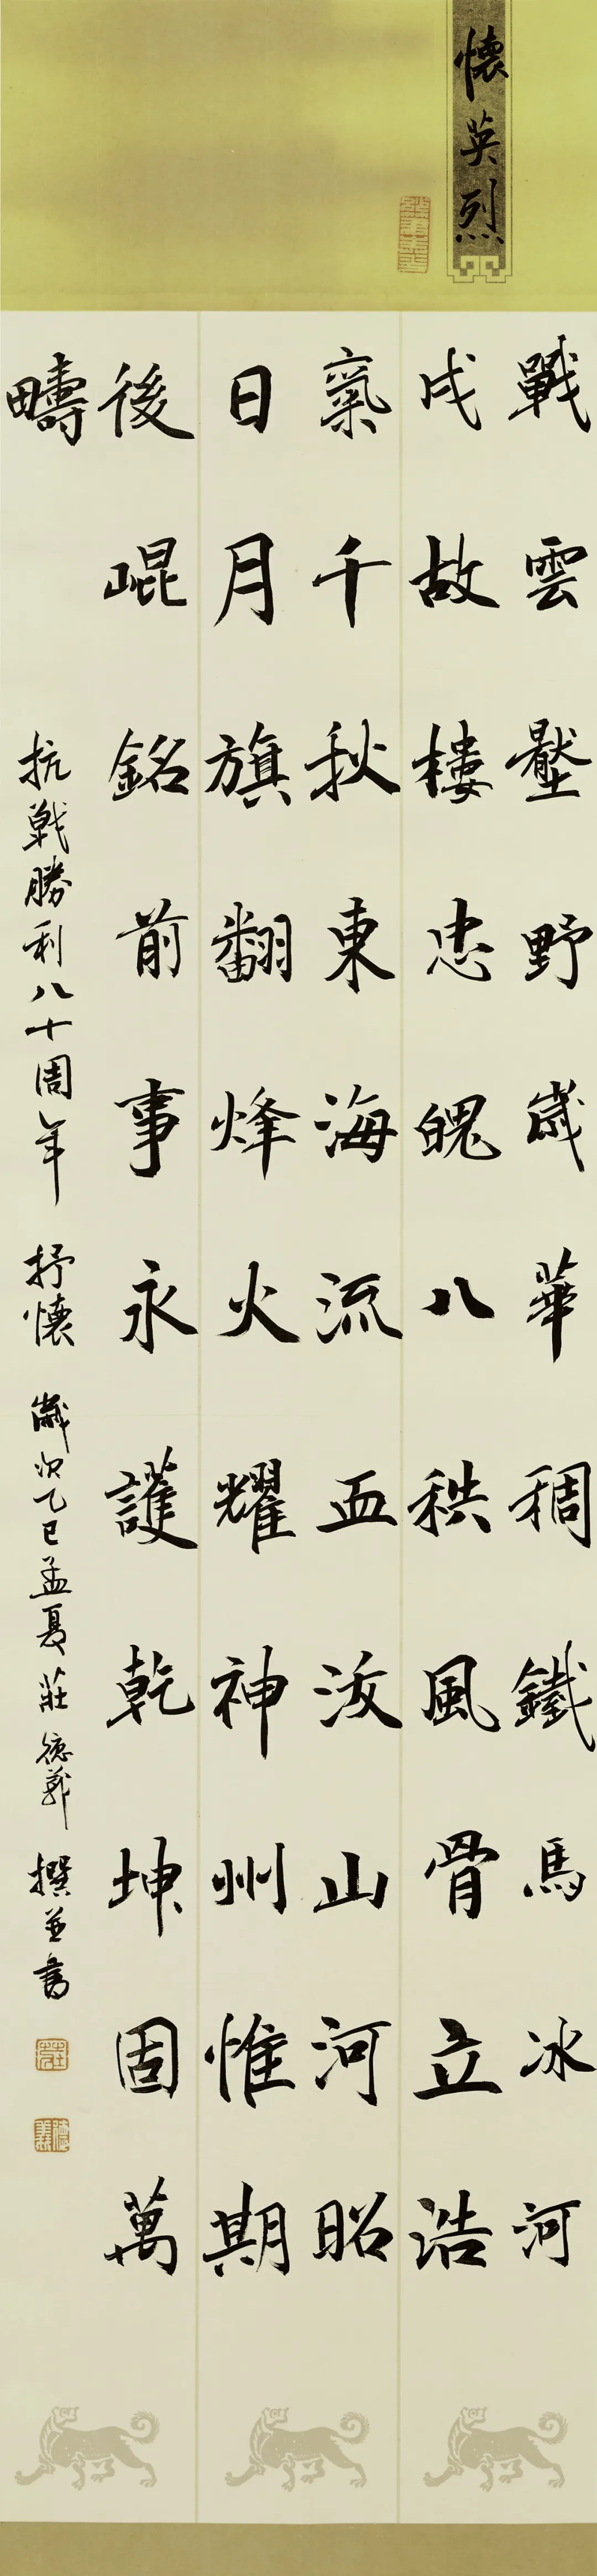 懷英烈
戰雲壑野歲華稠鐵馬冰河
戍故樓忠魄八秩風骨立浩
氣千秋東海流血沃山河昭
日月旗翻烽火耀神州惟期
後崐銘前事永護乾坤固萬
疇
抗戰勝利八十周年 抒懷 歲次乙巳孟夏莊德義撰並書
莊
德義